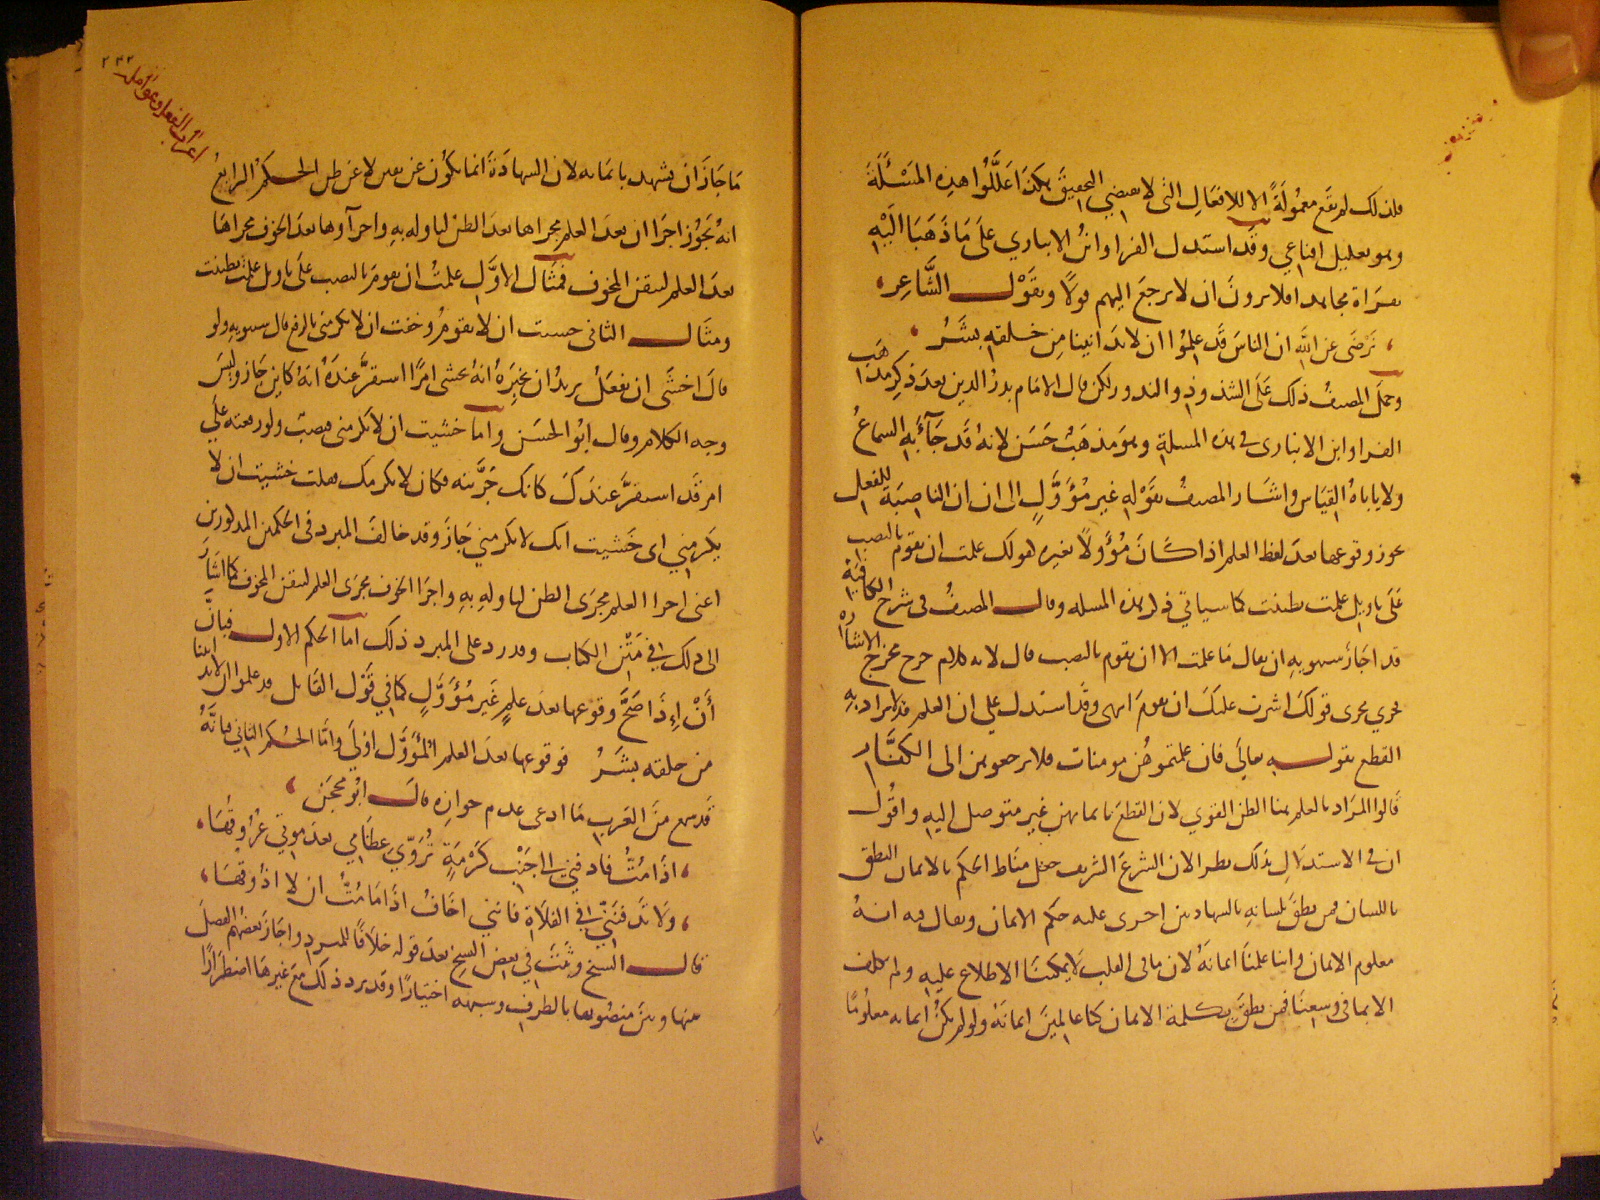 فلذلك لم تقع معمولة الا للافعال التى لا تقتضي التحقيق هكذا عللوا هذه المسئلة
وهو تعليل اقناعي وقد استدل الفرا وابن الانباري على ما ذهبا اليه
بقراة مجاهد افلا يرون ان لا يرجع اليهم قولا وبقول الشاعر
نرضى عن الله ان الناس قد علموا ان لا يدانينا من خلقه بشر
وحمل المصنف ذلك على الشذوذ والندور لكن قال الامام بدر الدين بعد ذكر مذهب
الفرا وابن الانبارى فى هذه المسلة وهو مذهب حسن لانه قد جاء به السماع
ولا ياباه القياس واشار المصنف بقوله غير مؤول الى ان ان الناصبة للفعل
يجوز وقوعها بعد لفظ العلم اذا كان مؤولا بغيره كقولك علمت ان يقوم بالنصب
على تاويل علمت بظننت كما سياتي فى هذه المسله وقال المصنف فى شرح الكافية
قد اجاز سيبويه ان يقال ما علمت الا ان يقوم بالنصب قال لانه كلام خرج مخرج الاشارة
فجري مجرى قولك اشرت عليك ان تقوم انتهى وقد استدل على ان العلم قد لا يراد به
القطع بقوله تعالى فان علمتموهن مومنات فلا ترجعوهن الى الكفار
قالوا المراد بالعلم هنا الظن القوي لان القطع بايمانهن غير متوصل اليه واقول
ان فى الاستدلال بذلك نظرا لان الشرع الشريف جعل مناط الحكم بالايمان النطق
باللسان فمن نطق بلسانه بالشهادتين اجرى عليه حكم الايمان ويقال فيه انه
معلوم الايمان واننا علمنا ايمانه لان ما فى القلب لا يمكننا الاطلاع عليه ولم نكلف
الا بما فى وسعنا فمن نطق بكلمة الايمان كنا عالمين ايمانه ولو لم يكن ايمانه معلوما
ما
٢٣٢
اعراب الفعل وعوامله
ما جاز ان نشهد بايمانه لان الشهادة انما تكون عن يقين لا عن ظن الحكم الرابع
انه تجوز اجرا ان بعد العلم مجراها بعد الظن لتاوله به واجراوها بعد الخوف مجراها
بعد العلم لتيقن المخوف فمثال الاول علمت ان يقوم بالنصب على تاويل علمت بظننت
ومثال الثانى حسبت ان لا يقوم وخفت ان لا تكرمنى بالرفع قال سيبويه ولو
قال اخشى ان تفعل يريد ان يخبره انه يخشى امرا استقر عنده انه كاين جاز وليس
وجه الكلام وقال ابو الحسن واما خشيت ان لا تكرمنى فنصب ولو رفعته على
امر قد استقر عندك كانك جربته فكان لا يكرمك فقلت خشيت ان لا
يكرمني اى خشيت انك لا تكرمني جاز وقد خالف المبرد فى الحكمين المذكورين
اعنى اجرا العلم مجرى الظن لتاوله به واجرا الخوف مجرى العلم لتيقن المخوف كما اشار
الى ذلك في متن الكتاب وقد رد على المبرد ذلك اما الحكم الاول فبان
أن إذا صح وقوعها بعد علم غير مؤول كما في قول القايل قد علموا ان لا يدانينا
من خلقه بشر فوقوعها بعد العلم المؤول اولى واما الحكم الثاني فبانه
قد سمع من العرب ما ادعى عدم جوازه قال ابو محجن
اذا مت فادفني الى جنب كرمة تروي عظامي بعد موتي عروقها
ولا تدفنني في الفلاة فانني اخاف اذا ما مت ان لا اذوقها
قال الشيخ وثبت في بعض النسخ بعد قوله خلافا للمبرد واجاز بعضهم الفصل
بينها وبين منصوبها بالظرف وشبهه اختيارا وقد يرد ذلك مع غيرها اضطرارا